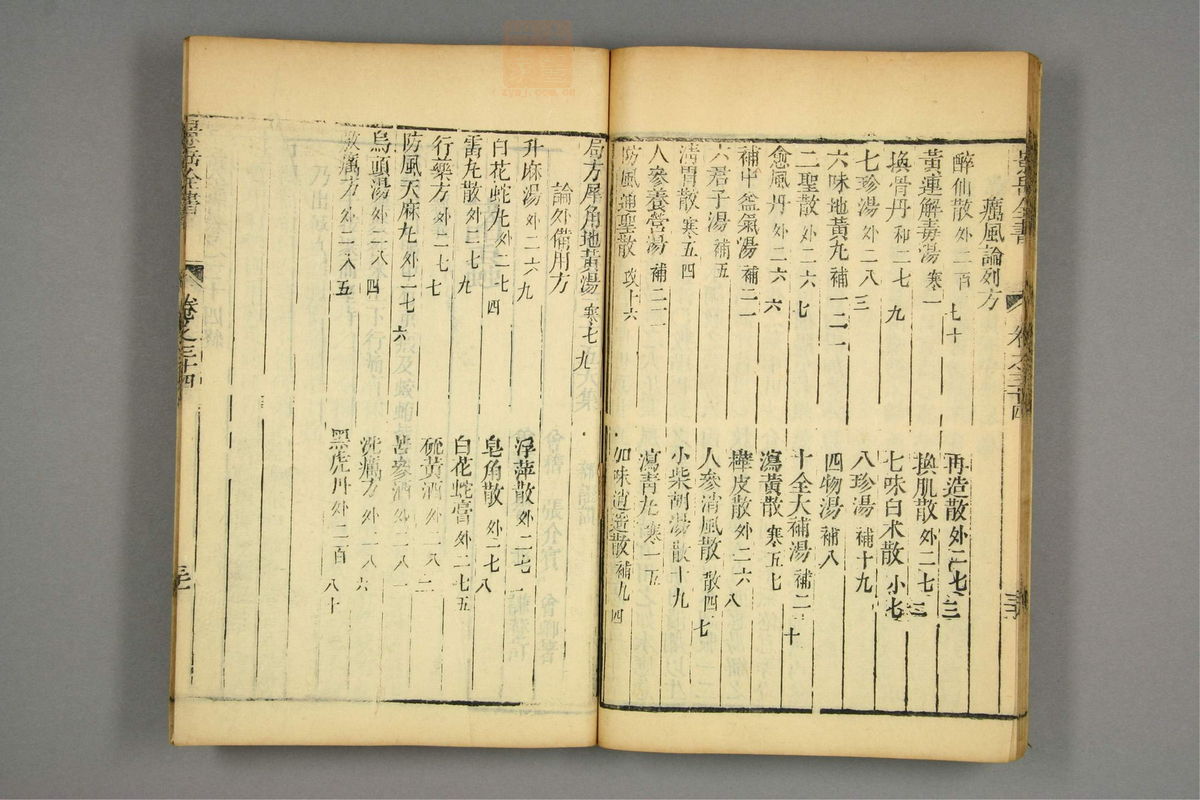 景岳全書 卷之三十四
癘風論列方
醉仙散 外二百七十 再造散 外二七三
黃連解毒湯 寒一 換肌散 外二七二
換骨丹 和二七九 七味白术散 小七
七珍湯 外二八三 八珍湯 補十九
六味地黃丸 補一二一 四物湯 補八
二聖散 外二六七 十全大補湯 補二十
愈風丹 外二六六 瀉黃散 寒五七
補中益氣湯 補三一 樺皮散 外二六八
六君子湯 補五 人參消風散 散四七
清胃散 寒五四 小柴胡湯 散十九
人參養營湯 補二一 瀉青丸 寒一五
防風通聖散 攻十六 加味逍遙散 補九四
局方犀角地黃湯 寒七九
論外備用方
升麻湯 外二六九 浮萍散 外二七一
白花蛇丸 外二七四 皂角散 外二七八
雷丸散 外二七九 白花蛇膏 外二七五
行藥方 外二七七 硫黃酒 外二八二
防風天麻丸 外二七六 苦參酒 外二八一
烏頭湯 外二八四 洗癘方 外二八六
敷癘方 外二八五 黑虎丹 外二百八十
景岳全書 卷之三十四